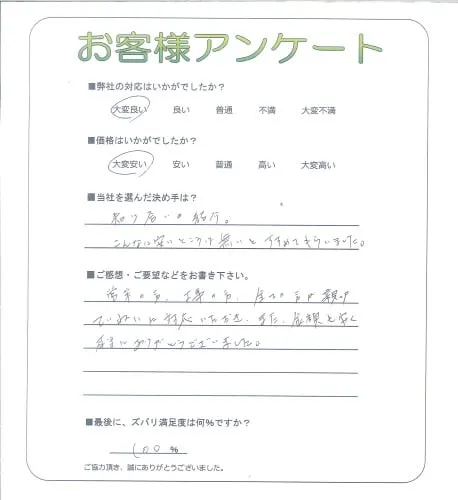 お客様アンケート
■弊社の対応はいかがでしたか？
大変良い 良い 普通 不満 大変不満
■価格はいかがでしたか？
大変安い 安い 普通 高い 大変高い
■当社を選んだ決め手は？
知り合いの紹介。
こんなに安いところは無いとすすめてもらいました。
■ご感想・ご要望などをお書き下さい。
営業の方、工事の方、全ての方が親切
ていねいに対応いただき、また、
本当にありがとうございました。
■最後に、ズバリ満足度は何%ですか？
100 %
ご協力頂き、誠にありがとうございました。